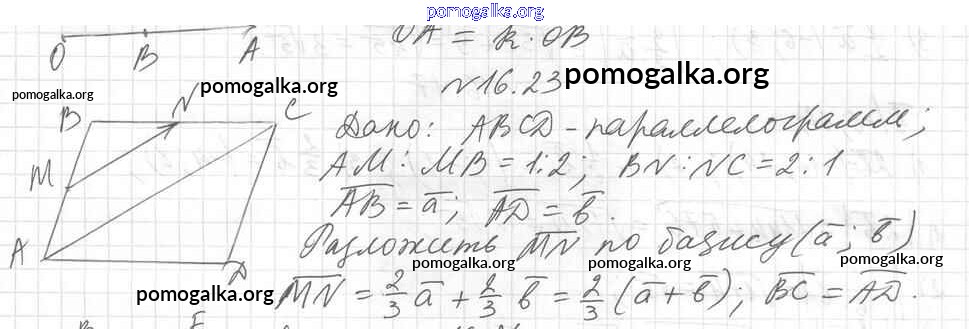 pomogalka.org
O B A
OA = k · OB
№16.23 pomogalka.org
pomogalka.org
pomogalka.org
B N C
M
A D
Дано: ABCD – параллелограмм;
AM : MB = 1:2; BN : NC = 2:1
AB = a; AD = b.
Разложить MN по базису (a; b)
pomogalka.org pomogalka.org pomogalka.org
pomogalka.org
MN = 2/3 a + 2/3 b = 2/3 (a + b); BC = AD.